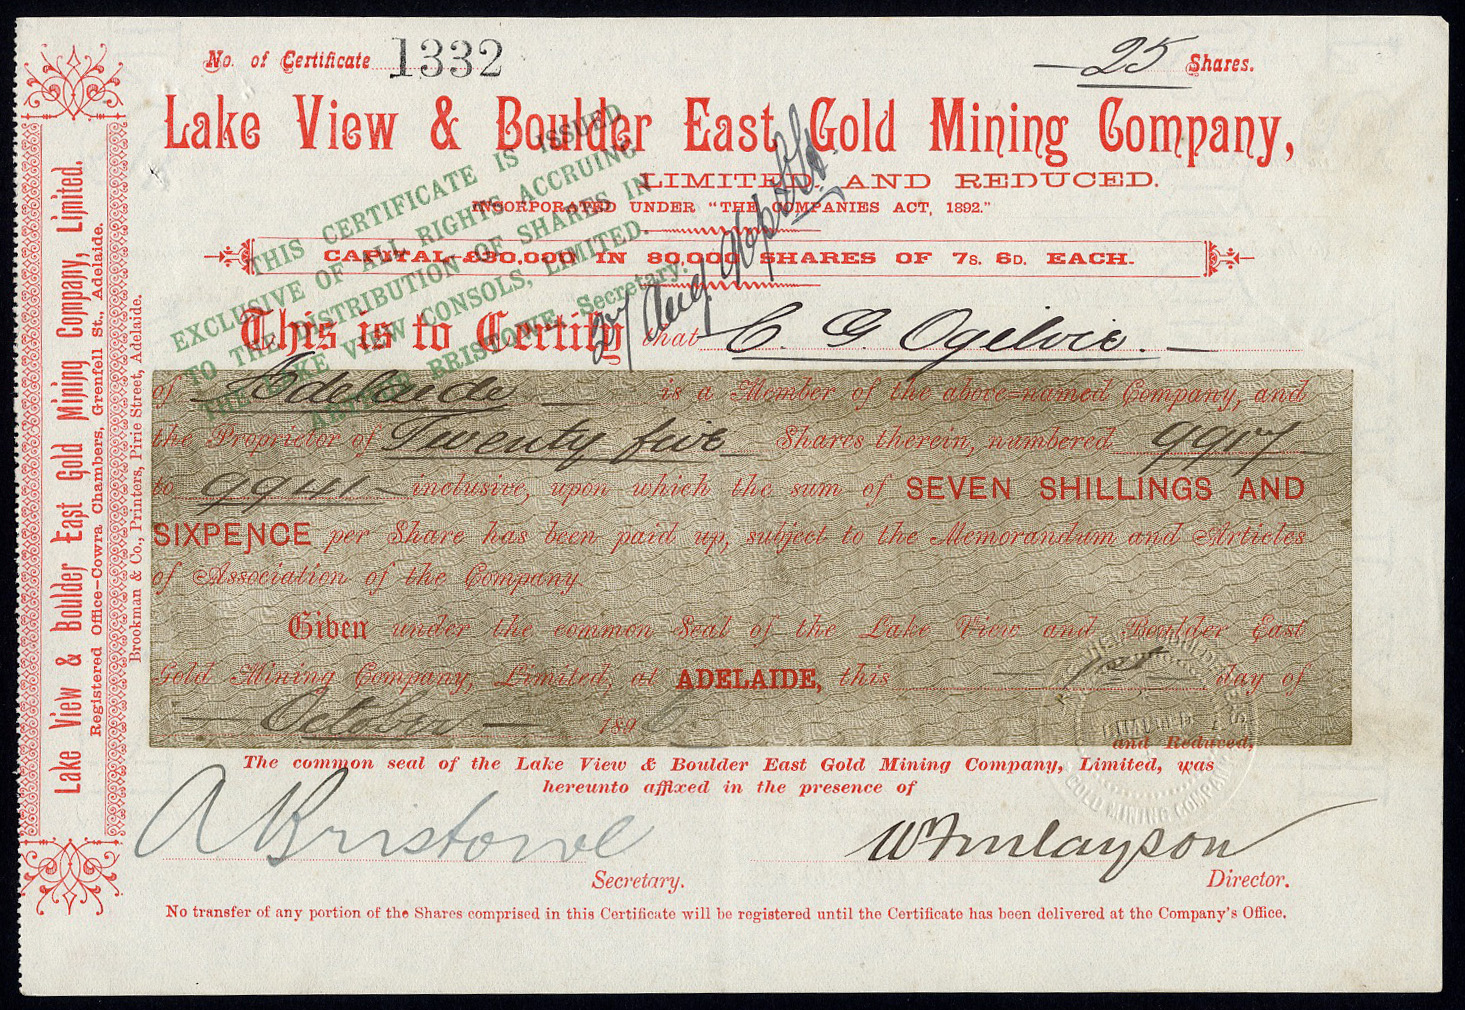 No. of Certificate 1332
25 Shares.
Lake View & Boulder East Gold Mining Company,
LIMITED. AND REDUCED.
INCORPORATED UNDER "THE COMPANIES ACT, 1892."
CAPITAL £30,000 IN 80,000 SHARES OF 7s. 6d. EACH.
THIS CERTIFICATE IS ISSUED
EXCLUSIVE OF ALL RIGHTS ACCRUING
TO THE DISTRIBUTION OF SHARES IN
THE LAKE VIEW CONSOLS, LIMITED.
BRISTOWE Secretary.
Aug
This is to Certify that C. G. Ogilvie.
of Adelaide is a Member of the above-named Company, and
the Proprietor of Twenty five Shares therein, numbered 9917
to 9941 inclusive, upon which the sum of SEVEN SHILLINGS AND
SIXPENCE per Share has been paid up, subject to the Memorandum and Articles
of Association of the Company.
Given under the common Seal of the Lake View and Boulder East
Gold Mining Company, Limited, at ADELAIDE, this 1st day of
October 189
and Reduced,
The common seal of the Lake View & Boulder East Gold Mining Company, Limited, was
hereunto affixed in the presence of
A Bristowe
Secretary.
W Finlayson
Director.
No transfer of any portion of the Shares comprised in this Certificate will be registered until the Certificate has been delivered at the Company's Office.
Lake View & Boulder East Gold Mining Company, Limited.
Registered Office—Cowra Chambers, Grenfell St., Adelaide.
Brookman & Co., Printers, Pirie Street, Adelaide.
GOLD MINING COMPANY